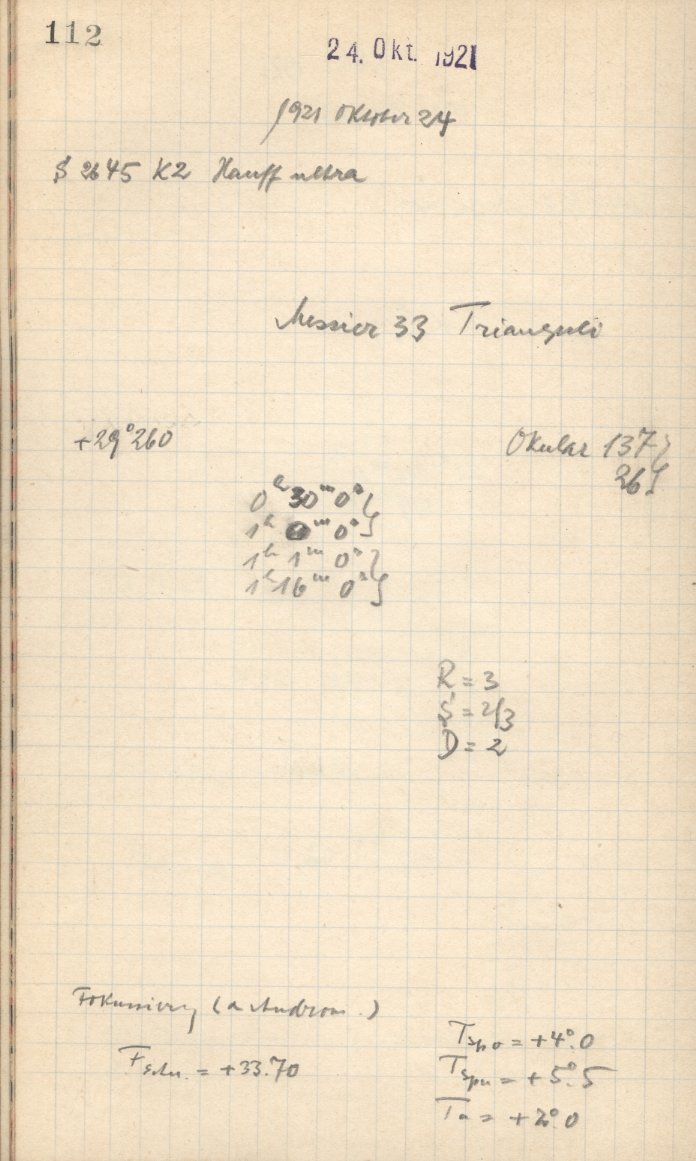 112
24. Okt. 1921
1921 Oktober 24
S 2645 K2 Hauff ultra
Messier 33 Trianguli
+29°260
Okular 137 }
26 }
0h 30m 0s }
1h 0m 0s }
1h 1m 0s }
1h 16m 0s }
R = 3
S = 2/3
D = 2
Fokussierg (α Androm.)
= +33.70
Tspo = +4°.0
Tspu = +5°.5
Ta = +2°.0